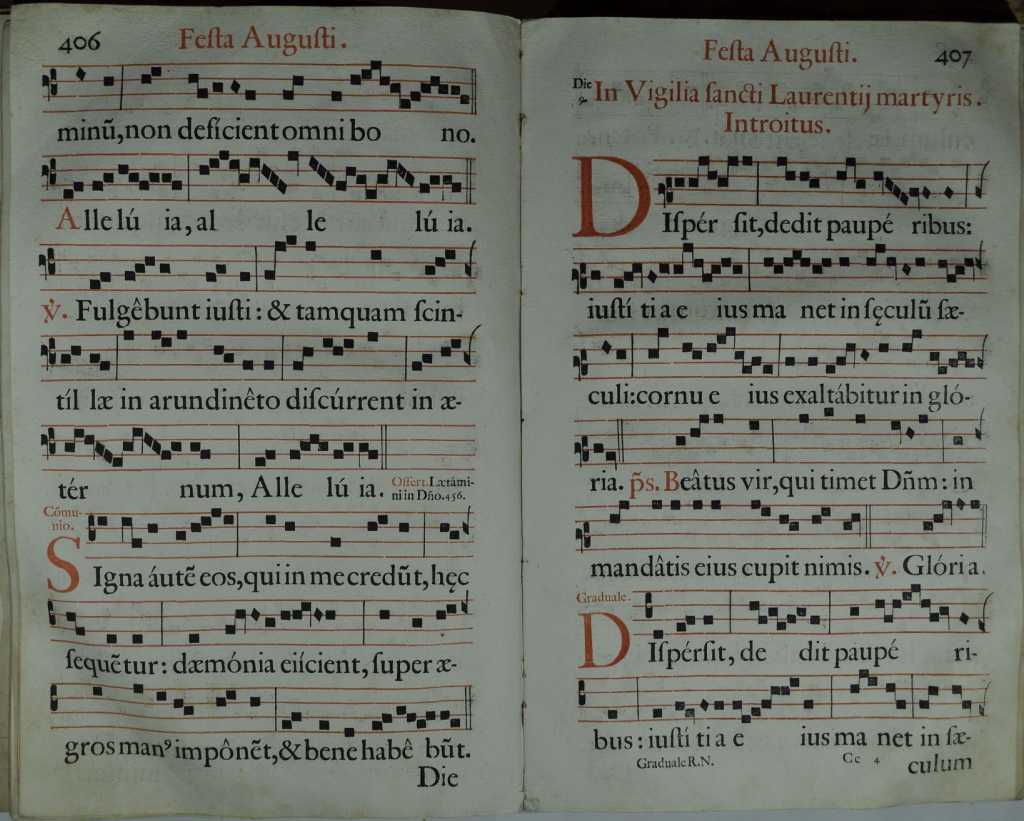 406 Feſta Auguſti.
minũ, non defícient omni bo no.
Alle lú ia, al le lú ia.
℣. Fulgêbunt iuſti : & tamquam ſcin-
tíl læ in arundinêto diſcúrrent in æ-
tér num, Alle lú ia. Offert. Lætámi-
ni in Dño. 456.
Cõmu-
nio.
SIgna áutẽ eos, qui in me credũt, hęc
ſequẽtur : dæmónia eiícient, ſuper æ-
gros manꝰ impônẽt, & bene habê bũt.
Die
Feſta Auguſti. 407
Die
9. In Vigilia ſancti Laurentij martyris.
Introitus.
DIſpér ſit, dedit paupé ribus:
iuſtí ti a e ius ma net in ſęculũ ſæ-
culi: cornu e ius exaltábitur in gló-
ria. p̃s. Beâtus vir, qui timet Dñm : in
mandâtis eius cupit nimis. ℣. Glóri a.
Graduale.
DIſpérſit, de dit paupé ri-
bus : iuſtí ti a e ius ma net in ſæ-
Graduale R.N. Cc 4 culum